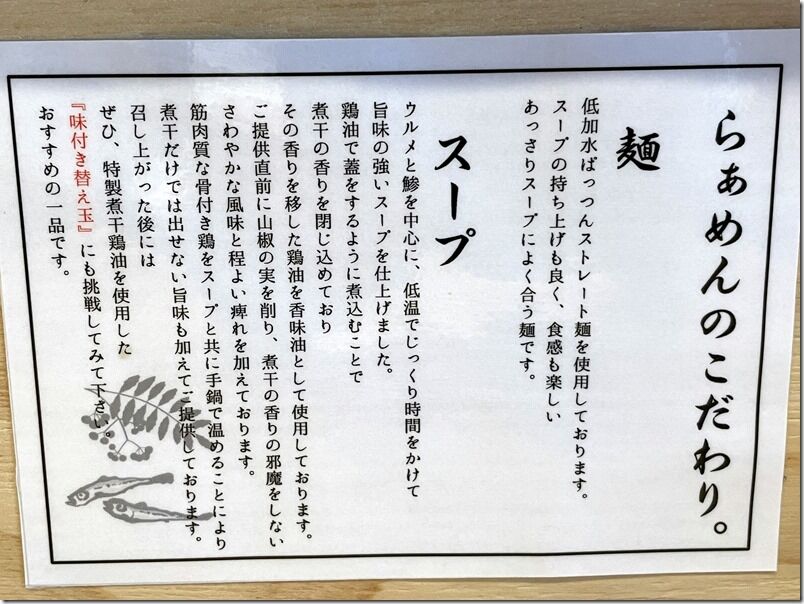 らぁめんのこだわり。
麺
低加水ぱっつんストレート麺を使用しております。
スープの持ち上げも良く、食感も楽しい
あっさりスープによく合う麺です。
スープ
ウルメと鯵を中心に、低温でじっくり時間をかけて
旨味の強いスープを仕上げました。
鶏油で蓋をするように煮込むことで
煮干の香りを閉じ込めており
その香りを移した鶏油を香味油として使用しております。
ご提供直前に山椒の実を削り、煮干の香りの邪魔をしない
さわやかな風味と程よい痺れを加えております。
筋肉質な骨付き鶏をスープと共に手鍋で温めることにより
煮干だけでは出せない旨味も加えてご提供しております。
召し上がった後には
ぜひ、特製煮干鶏油を使用した
『味付き替え玉』にも挑戦してみて下さい。
おすすめの一品です。